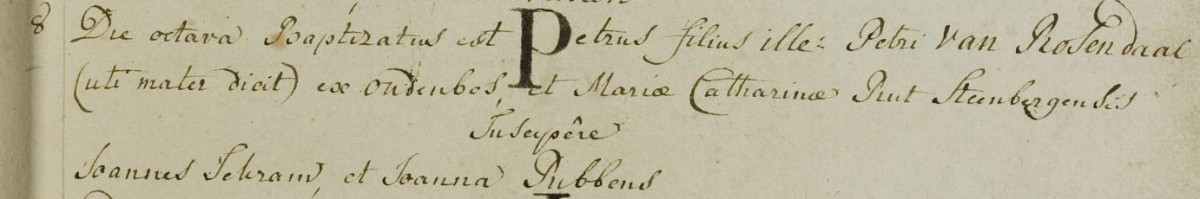 8 Die octava Baptizatus est Petrus filius ille: Petri Van Rosendaal
(uti mater dicit) ex oudenbos, et Mariæ Catharinæ Rut Steenbergensis
Suscepêre
Joannes Schram, et Joanna Pubbens